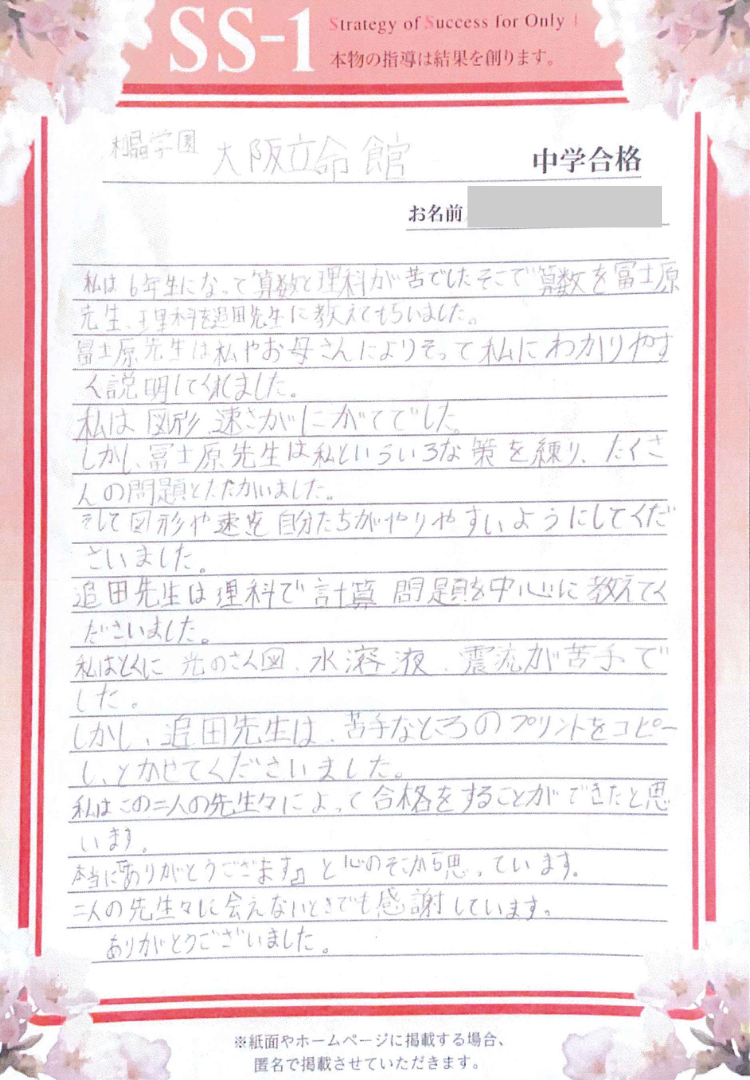 SS-1
Strategy of Success for Only 1
本物の指導は結果を創ります。
初芝学園 大阪立命館 中学合格
お名前
私は6年生になって算数と理科が苦でしたそこで算数を冨士原
先生、理科を追田先生に教えてもらいました。
冨士原先生は私やお母さんによりそって私にわかりやす
く説明してくれました。
私は図形 速さがにがてでした。
しかし、冨士原先生は私といういろな策を練り、たくさ
んの問題とたたかいました。
そして図形や速を自分たちがやりやすいようにしてくだ
さいました。
追田先生は理科で計算問題を中心に教えてく
ださいました。
私はとくに 光のさく図、水溶液、震流が苦手で
した。
しかし、追田先生は、苦手なところのプリントをコピー
し、とかせてくださいました。
私はこの二人の先生々によって合格をすることができたと思
います。
本当に『ありがとうござます』と心のそこから思っています。
二人の先生々に会えないときでも感謝しています。
ありがとうございました。
※紙面やホームページに掲載する場合、
匿名で掲載させていただきます。